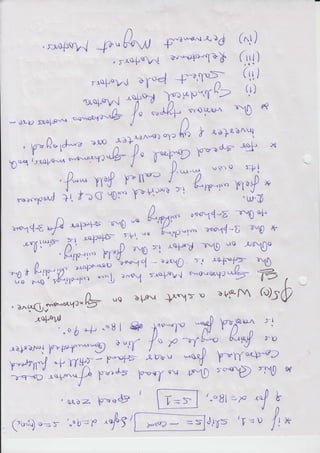 * if a=1, slip S = - cosα, for α=90°, S=0 (min)
& for α=180°, S=1, speed zero.
* This shows that no load speed of motor can be
controlled from near stand-still to full speed
as firing angle α of line commutated inverter
is varied from almost 180° to 90°.
Q5(c) Write a short note on Synchronous Motor Drive.
Sol Synchronous Motors have two windings, one on
the stator is three-phase armature winding & the
other on the Rotor is the field winding.
* The 3-phase winding on its stator is similar
to the 3-phase winding on the stator of a 3-phase
I.M.
* field winding is excited with DC & it produces
its own mmf called field mmf.
* for speed control of synchronous motors, both
inverter & cycloconverter are employed.
* The various types of synchronous motor are -
(i) Cylindrical Rotor Motors
(ii) Salient pole Motors
(iii) Reluctance Motors.
(iv) Permanent Magnet Motors.